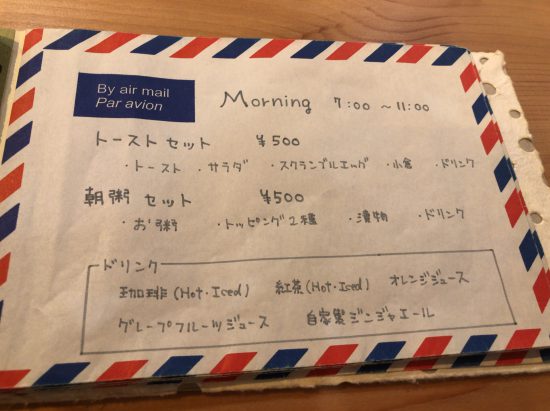 By air mail
Par avion
Morning 7:00 ~ 11:00
トーストセット ¥500
・トースト ・サラダ ・スクランブルエッグ ・小倉 ・ドリンク
朝粥 セット ¥500
・お粥 ・トッピング2種 ・漬物 ・ドリンク
ドリンク
珈琲 (Hot・Iced) 紅茶 (Hot・Iced) オレンジジュース
グレープフルーツジュース 自家製ジンジャエール